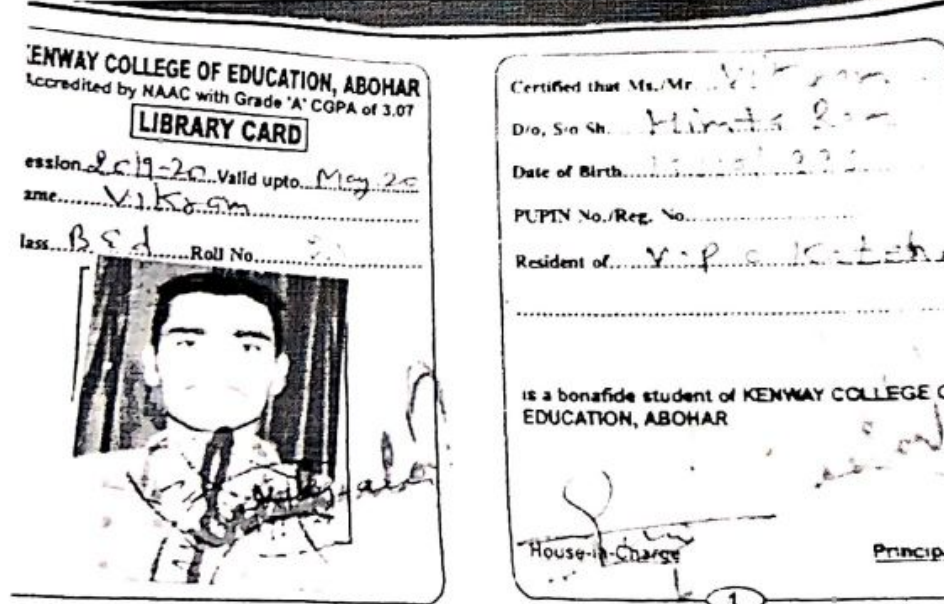 KENWAY COLLEGE OF EDUCATION, ABOHAR
Accredited by NAAC with Grade 'A' CGPA of 3.07
LIBRARY CARD
ession 2019-20 Valid upto May 20
ame Vikram
lass B Ed Roll No
Certified that Ms./Mr Vikram
D/o, S/o Sh. Ram
Date of Birth
PUPIN No./Reg. No.
Resident of V.P.O
is a bonafide student of KENWAY COLLEGE O
EDUCATION, ABOHAR
House-in-Charge
Princip
1